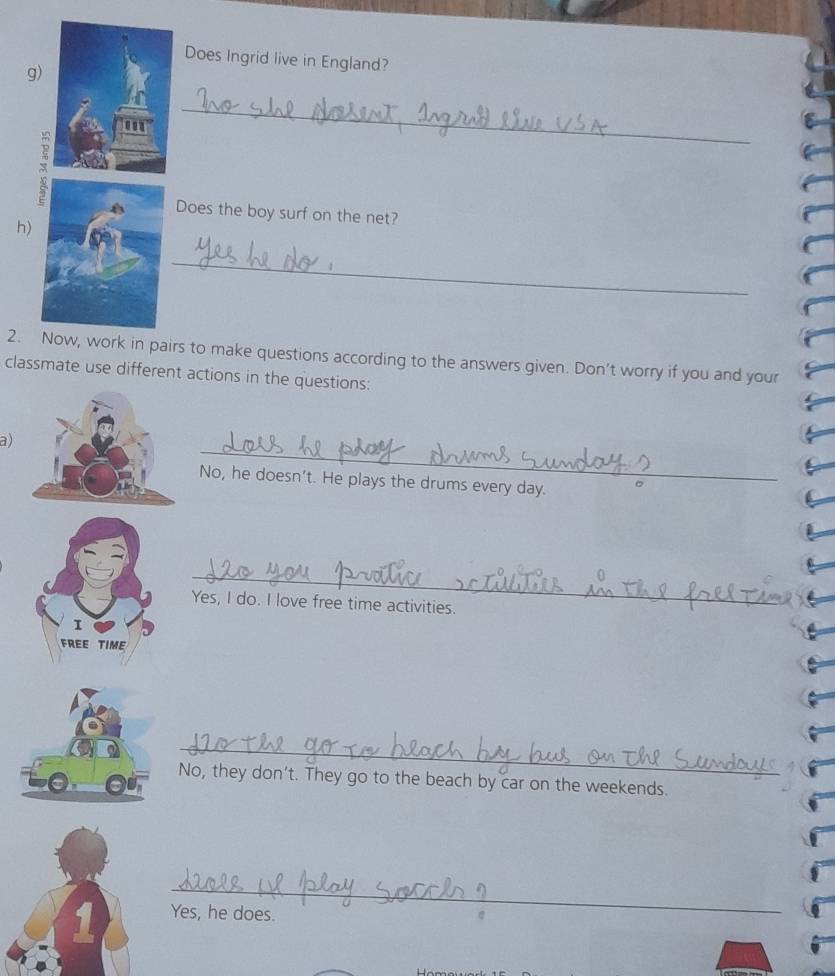 g)
Does Ingrid live in England?
no she dosent, Ingrid live USA
Images 34 and 35
h)
Does the boy surf on the net?
yes he do.
2. Now, work in pairs to make questions according to the answers given. Don't worry if you and your
classmate use different actions in the questions:
a)
does he play drums sunday?
No, he doesn't. He plays the drums every day.
Do you pratic activities in the free time
Yes, I do. I love free time activities.
I
FREE TIME
Do the go to beach by bus on the Sundays?
No, they don't. They go to the beach by car on the weekends.
Does he play soccer?
Yes, he does.
1